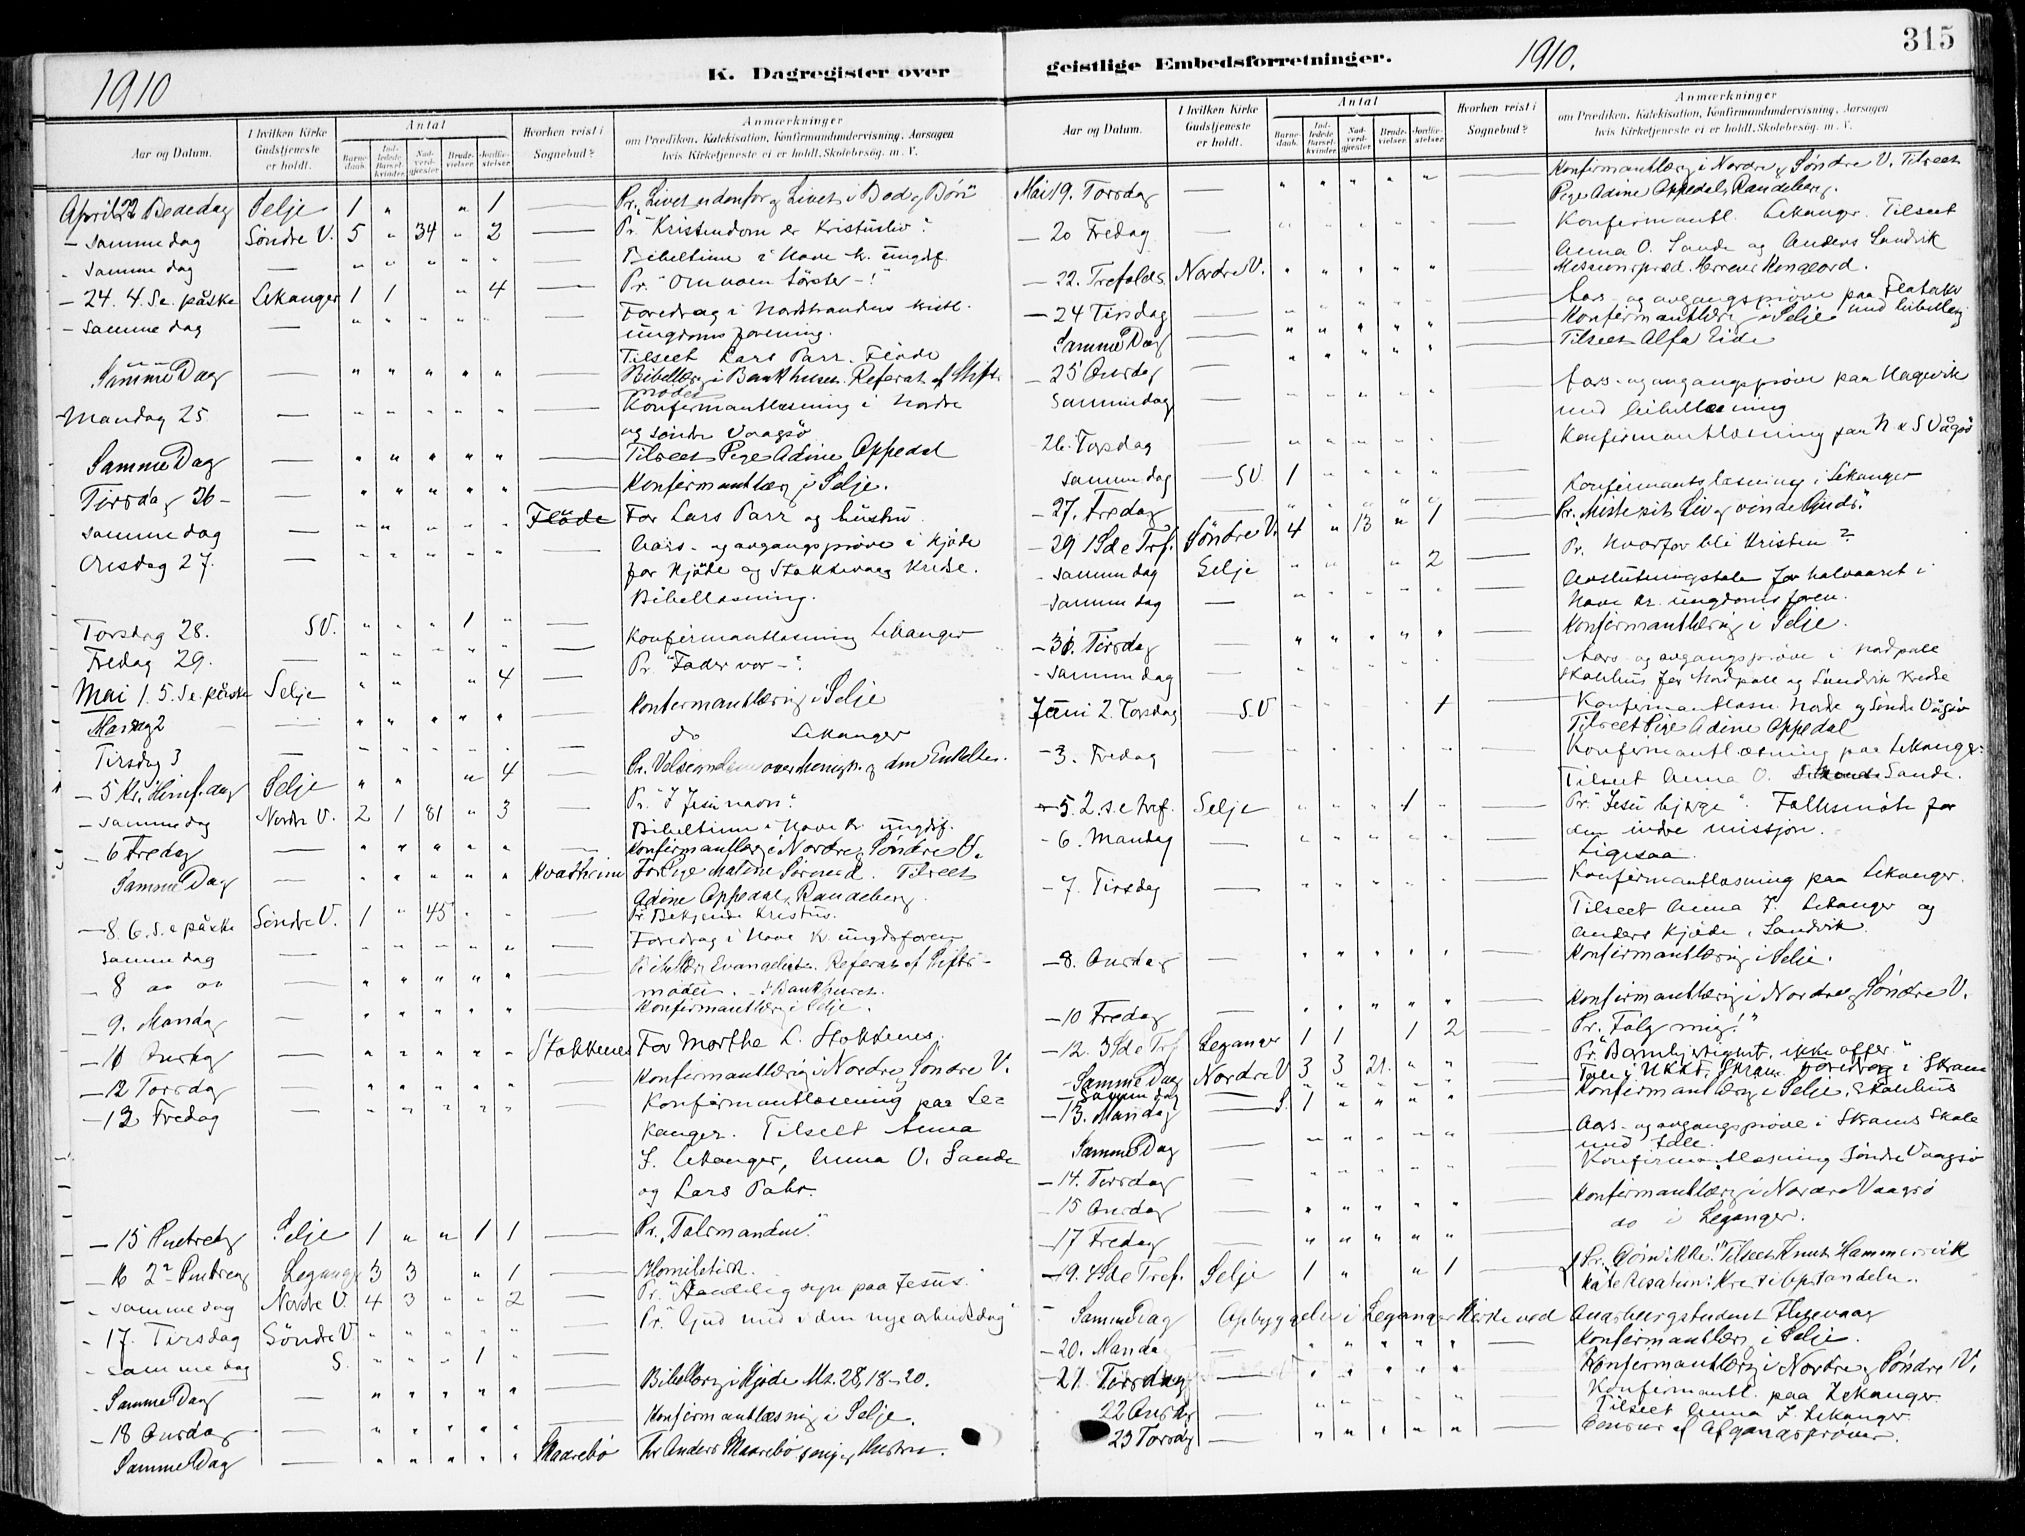 1910
K. Dagregister over
Aar og Datum.
I hvilken Kirke Gudstjeneste er holdt.
Antal
Barne-daab.
Ind-ledede Barsel-kvinder.
Nad-verd-gjæster
Brude-vielser
Jordfæ-stelser
Hvorhen reist i Sognebud?
Anmærkninger
om Prædiken, Katekisation, Konfirmandundervisning, Aarsagen
hvis Kirketjeneste ei er holdt, Skolebesøg. m. V.
April 22 Bededag Selje 1 " " 1 — Pr. "Livet udenfor og Livet i Bod og Bön"
- samme dag Søndre V. 5 " 34 " 2 — Pr. "Kristendom er Kristusliv".
- samme dag — " " " " " — Bibeltime i Nave kr. ungdf.
- 24. 4. Se. påske Lekanger 1 1 " 4 — Pr. "Om noen törster -!"
- samme dag — " " " " " — Foredrag i Nordstrandens kristl.
ungdomsforening.
Tilseet Lars Parr. Flöde
Samme Dag — " " " " " — Bibellæsg i Bankhuset. Referat af Stifts
mödet
Mandag 25 — " " " " " — Konfermantlæsning i Nordre
og søndre Vaagsö
Samme Dag — " " " " " — Tilseet Pige Adine Oppedal
Tirsdag 26 — " " " " " — Konfirmantlæsg i Selje.
samme dag — " " " " " Flöde For Lars Parr og hustru
Onsdag 27. — " " " " " — Aars- og avgangspröve i Kjöde
for Kjöde og Stokkevaag Kredse.
Bibellæsning.
Torsdag 28. SV. " " " 1 " —
Fredag 29. — " " " " " — Konfirmantlæsning Lekanger
Mai 1. 5. Se. påske Selje " " " 4 — Pr. "Fader vor -".
Mandag 2 — " " " " " — Konfermantlæsng i Selje
Tirsdag 3 — " " " " " — do Lekanger
- 5 Kr. Himf. dag Selje " " " 4 — Pr. Velsignelsen over Menigh. og den Enkelte.
- samme dag Nordre V. 2 1 81 " 3 — Pr. "I Jesu navn".
Bibeltime i Nave kr. ungdf.
- 6 Fredag — " " " " " — Konfirmantlæsg i Nordre og Søndre V.
Samme Dag — " " " " " Hvatheim For Pige Maline Sörned. Tilseet
Adine Oppedal, Randeberg.
- 8. 6. S. e påske Söndre V. 1 " 45 " " — Pr. Bekjende Kristus.
samme dag — " " " " " — Foredrag i Nave kr. ungdsforen
- 8 — " " " " " — Referat af Stifts-
mödet. i Bankhuset.
- 9. Mandag — " " " " " — Konfirmantlæsg i Selje.
- 11 Onsdag — " " " " " Stokkenes For Marthe L. Stokkenes.
- 12 Torsdag — " " " " " — Konfirmantlæsng i Nordre Søndre V.
- 13 Fredag — " " " " " — Konfirmantlæsning paa Le-
kanger. Tilseet Anna
J. Lekanger, Anna O. Sande
og Lars Pahr.
- 15 Pintsedag Selje 1 " " 1 1 — Pr. "Talsmanden".
- 16 2n Pintsedag Leganger 3 3 " 1 — Homiletisk.
- samme dag Nordre V. 4 3 " " 2 — Pr. "Aandelig syn paa Jesus".
- 17. Tirsdag Söndre V. " " " " " — Pr. "Gud med i den nye arbeidsdag"
- samme dag S. " " " 1 "
- Samme Dag — " " " " " — Bibellæsng i Kjöde Mt. 28, 18-20.
- 18 Onsdag — " " " " " — Konfirmantlæsnig i Selje.
Samme Dag — " " " " " Maarebö For Anders Maarebö senjog Hustru.
geistlige Embedsforretninger.
1910.
315
Aar og Datum.
I hvilken Kirke Gudstjeneste er holdt.
Antal
Barne-daab.
Ind-ledede Barsel-kvinder.
Nad-verd-gjæster
Brude-vielser
Jordfæ-stelser
Hvorhen reist i Sognebud?
Anmærkninger
om Prædiken, Katekisation, Konfirmandundervisning, Aarsagen
hvis Kirketjeneste ei er holdt, Skolebesög. m. V.
Mai 19. Torsdag — " " " " " — Konfirmantlæsng i Nordre og Søndre V. Tilseet
Pige Adine Oppedal, Randeberg.
- 20 Fredag — " " " " " — Konfirmantl. Lekanger. Tilseet
Anna O. Sande og Anders Sandvik
- 22. Trefoldss. Nordre V. " " " " " — Missionspræd.
- 24 Tirsdag — " " " " " — Aars- og avgangspröve paa Flatraket
med bibellæsng
Samme Dag — " " " " " — Konfirmantlæsng i Selje
Tilseet Alfa Eide
- 25 Onsdag — " " " " " —
Samme dag — " " " " " — Aars- og avgangspröve paa Hagevik
med bibellæsning
26. Torsdag — " " " " " — Konfirmantlæsning paa N & S Vågsö
samme dag SV. 1 " " " " —
- 27. Fredag — " " " " " — Konfirmantslæsning i Lekanger
- 29 1 Sde Trf. Söndre V. 4 " 13 " 1 — Pr. "Miste sit Liv og vinde Guds."
- samme dag Selje " " " 2 — Pr. Hvorfor bli Kristen?
- samme dag — " " " " " — Avslutningstale for halvaaret i
Nave kr. ungdoms foren.
- 31. Tirsdag — " " " " " — Konfirmantlæsng i Selje.
- samme dag — " " " " " — Aars- og avgangspröve i Nordpoll
skolehus for Nordpoll og Sandvik Kredse
Juni 2. Torsdag S.V " " " " 1 — Konfirmantlæsn. Nordre og Söndre Vågsö
Tilseet Pige Adine Oppedal
- 3. Fredag — " " " " " — Konfirmantlæsning paa Lekanger.
Tilseet Anna O. Sande.
- 5. 2. s. e tref. Selje " " " 1 " — Pr. "Jesu bjerge". Folkemöte for
den indre missjon.
- 6. Mandag — " " " " " — Ligesaa.
- 7. Tirsdag — " " " " " — Konfirmantlæsning paa Lekanger.
Tilseet Anna J. Lekanger og
Anders Kjöde, Sandvik.
- 8. Onsdag — " " " " " — Konfirmantlæsng i Selje.
- 10 Fredag — " " " " " — Konfirmantlæsng i Nordre og Søndre V.
- 12. 3 Sde Trf Leganger 1 1 1 2 — Pr. "Følg mig!"
- Samme Dag Nordre V 3 3 21. " " — Pr. "Barmhjertighet, ikke offer."
- Samme dag — " " " " " — foredrag i Skram
- 13. Mandag S. 1 " " " " — Konfirmantlæsg i Selje, Skolehus
Samme Dag — " " " " " — Aars- og avgangspröve i Skrams Skole
med tale.
- 14. Tirsdag — " " " " " — Konfirmantlæsning Søndre Vaagsö
- 15 Onsdag — " " " " " — Konfirmantlæsg i Nordre Vaagsö
- 17 Fredag — " " " " " — do i Leganger.
- 19. 4 Sde Tref. Selje 1 " " 1 — Pr. Döm ikke!" Tilseet Knut Hammersvik
Katekisation: Kristi Opstandelse.
Samme Dag Opbyggelse i Leganger Kirke ved
- 20. Mandag — " " " " " — Konfirmantlæsg i Selje.
- 21. Tirsdag — " " " " " — Konfirmantlæsng i Nordre og Søndre V.
22 Onsdag — " " " " " — Konfirmantl. paa Lekanger.
Tilseet Anna J. Lekanger.
23 Torsdag — " " " " " — Censur af Afgangspröver.